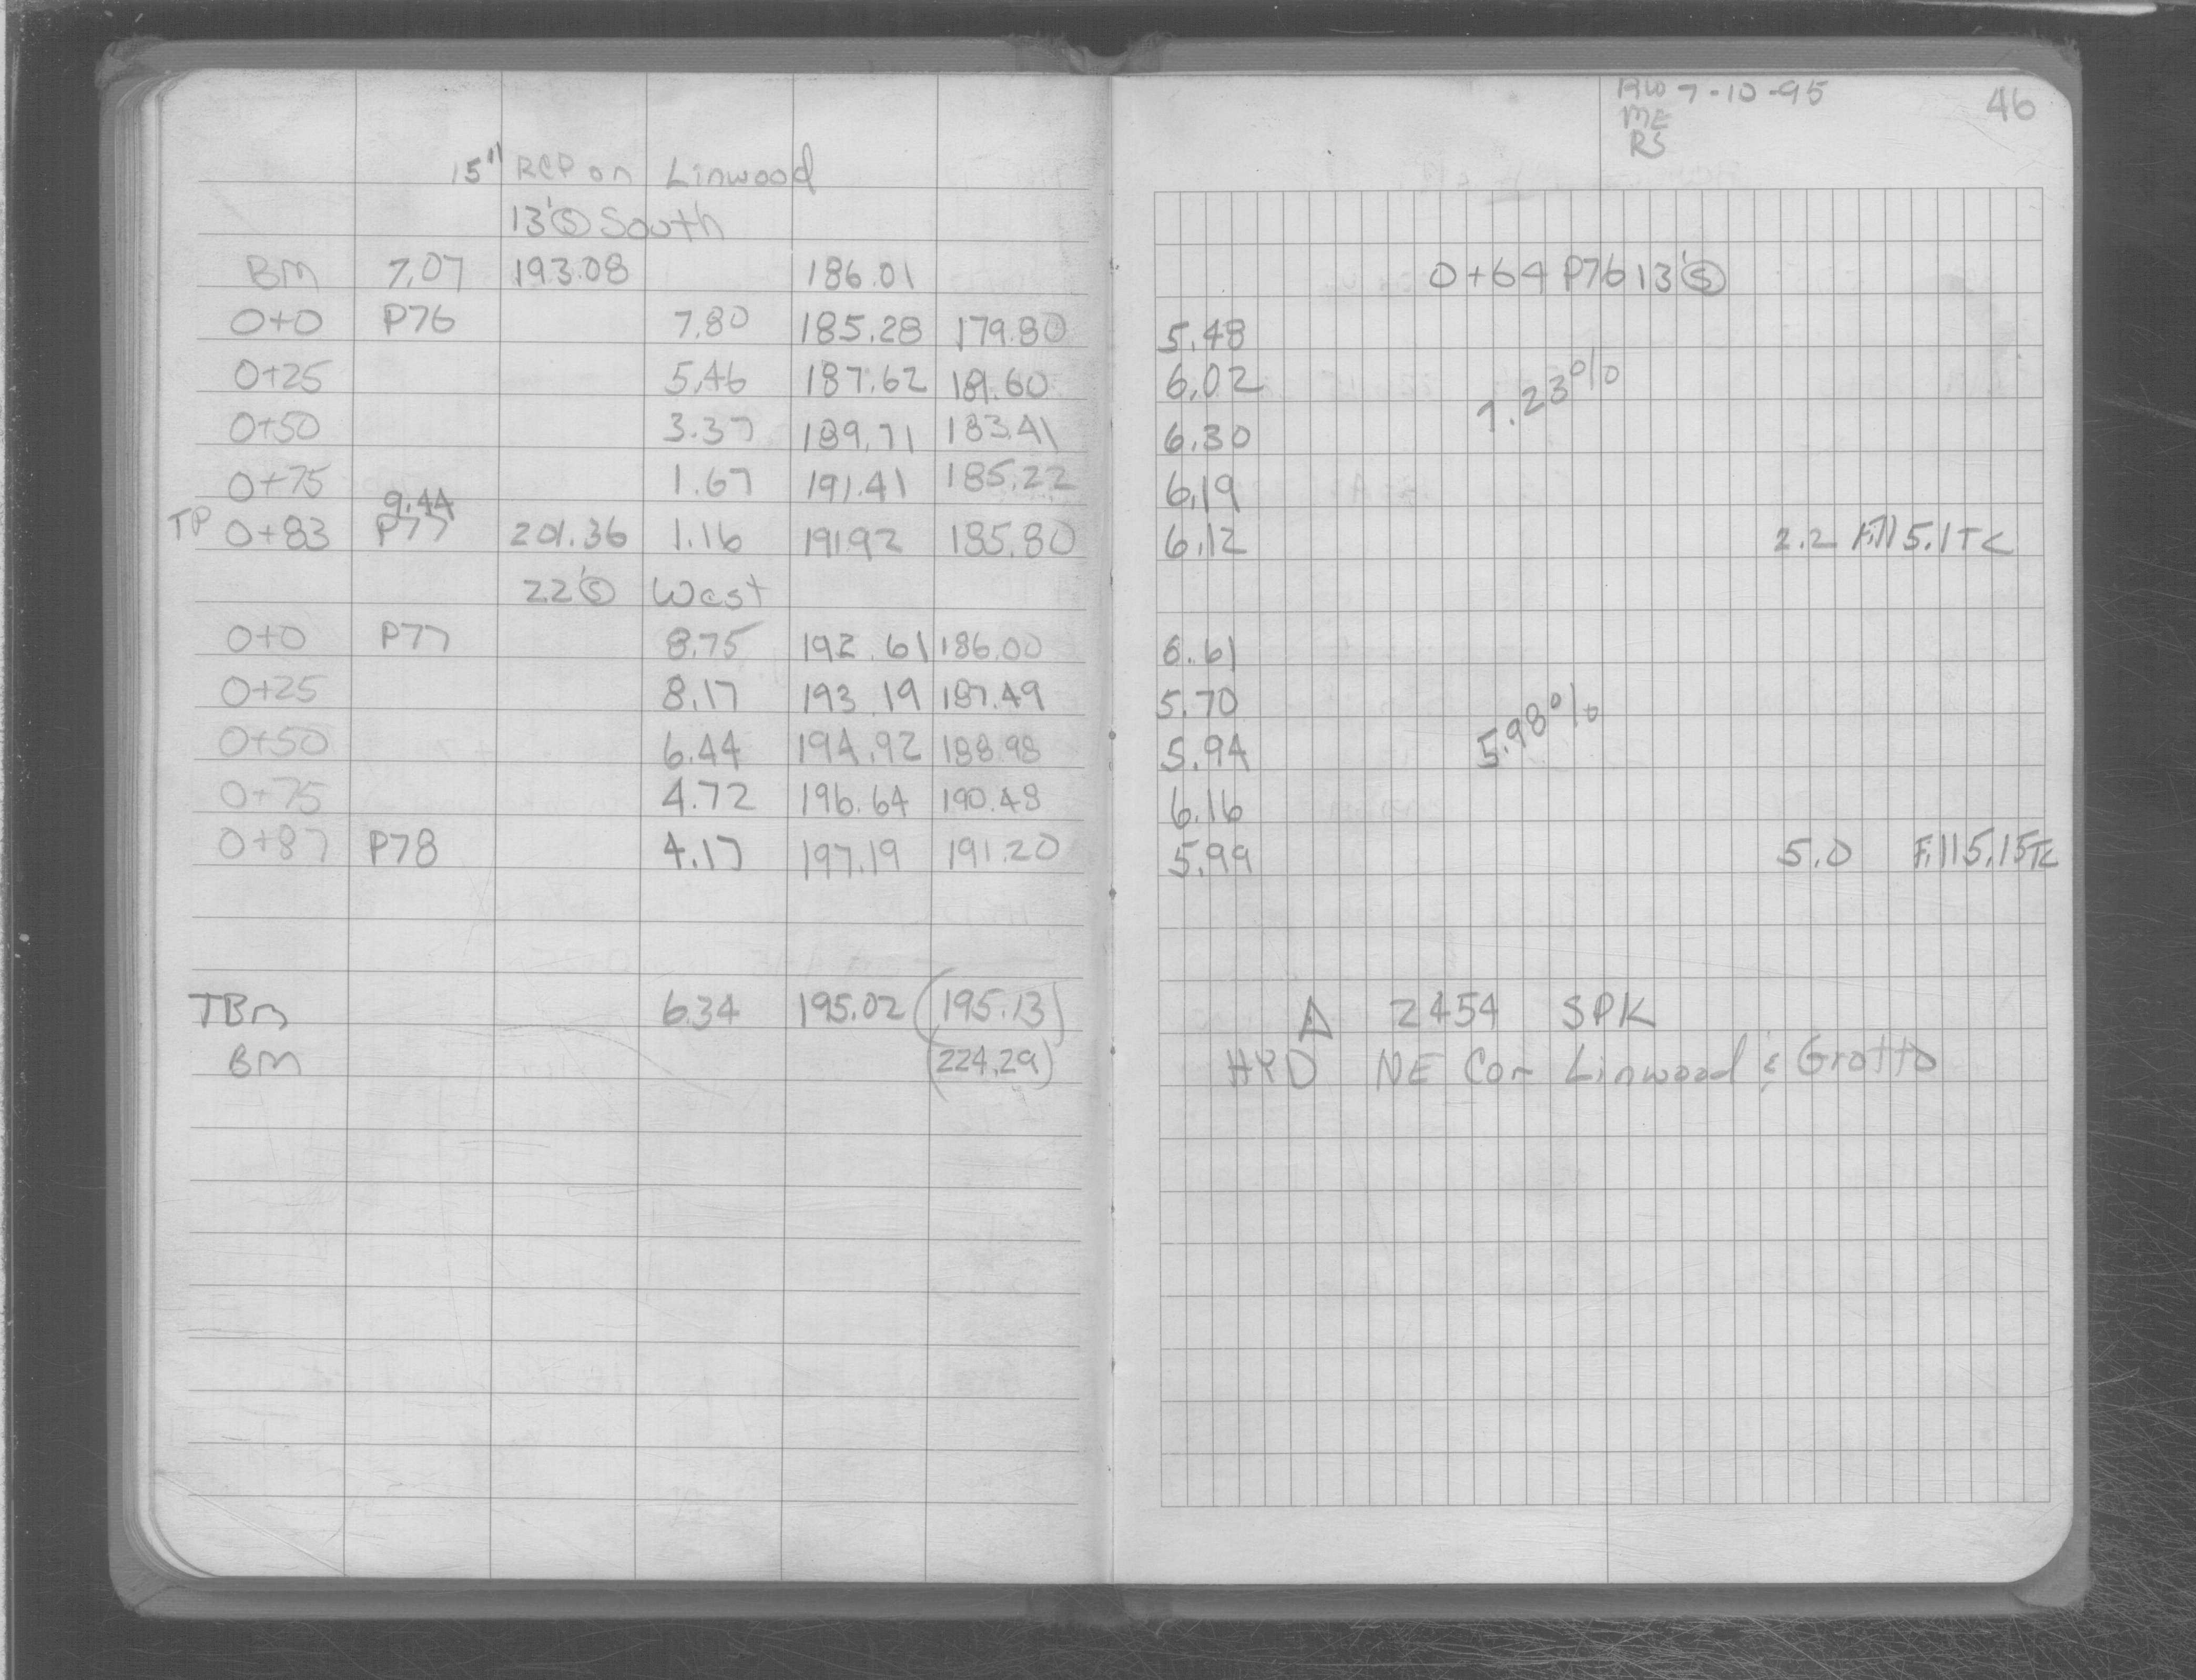 RW 7-10-95 46
ME
RS
15" RCP on Linwood
13' Ⓢ South
BM 7.07 193.08 186.01 0+64 P76 13' Ⓢ
0+0 P76 7.80 185.28 179.80 5.48
0+25 5.46 187.62 181.60 6.02 7.23%
0+50 3.37 189.71 183.41 6.30
0+75 1.67 191.41 185.22 6.19
9.44
TP 0+83 P77 201.36 1.16 191.92 185.80 6.12 2.2 Fill 5.1 TC
22' Ⓢ West
0+0 P77 8.75 192.61 186.00 6.61
0+25 8.17 193.19 187.49 5.70
0+50 6.44 194.92 188.98 5.94 5.98%
0+75 4.72 196.64 190.48 6.16
0+87 P78 4.17 197.19 191.20 5.99 5.0 Fill 5.15 TC
TBM 6.34 195.02 (195.13) Δ 2454 SPK
BM (224.29) HYD NE Cor Linwood & Grotto